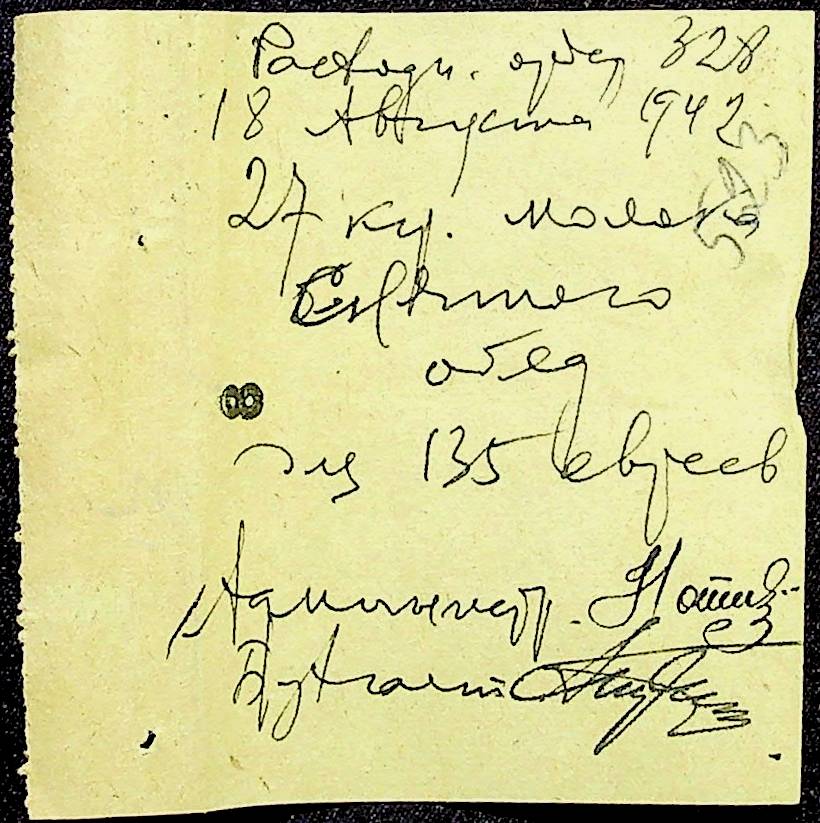 Расходн. ордер 328
18 Августа 1942
27 кг. молока
обед
для 135 евреев
Администр.
Бухгалт